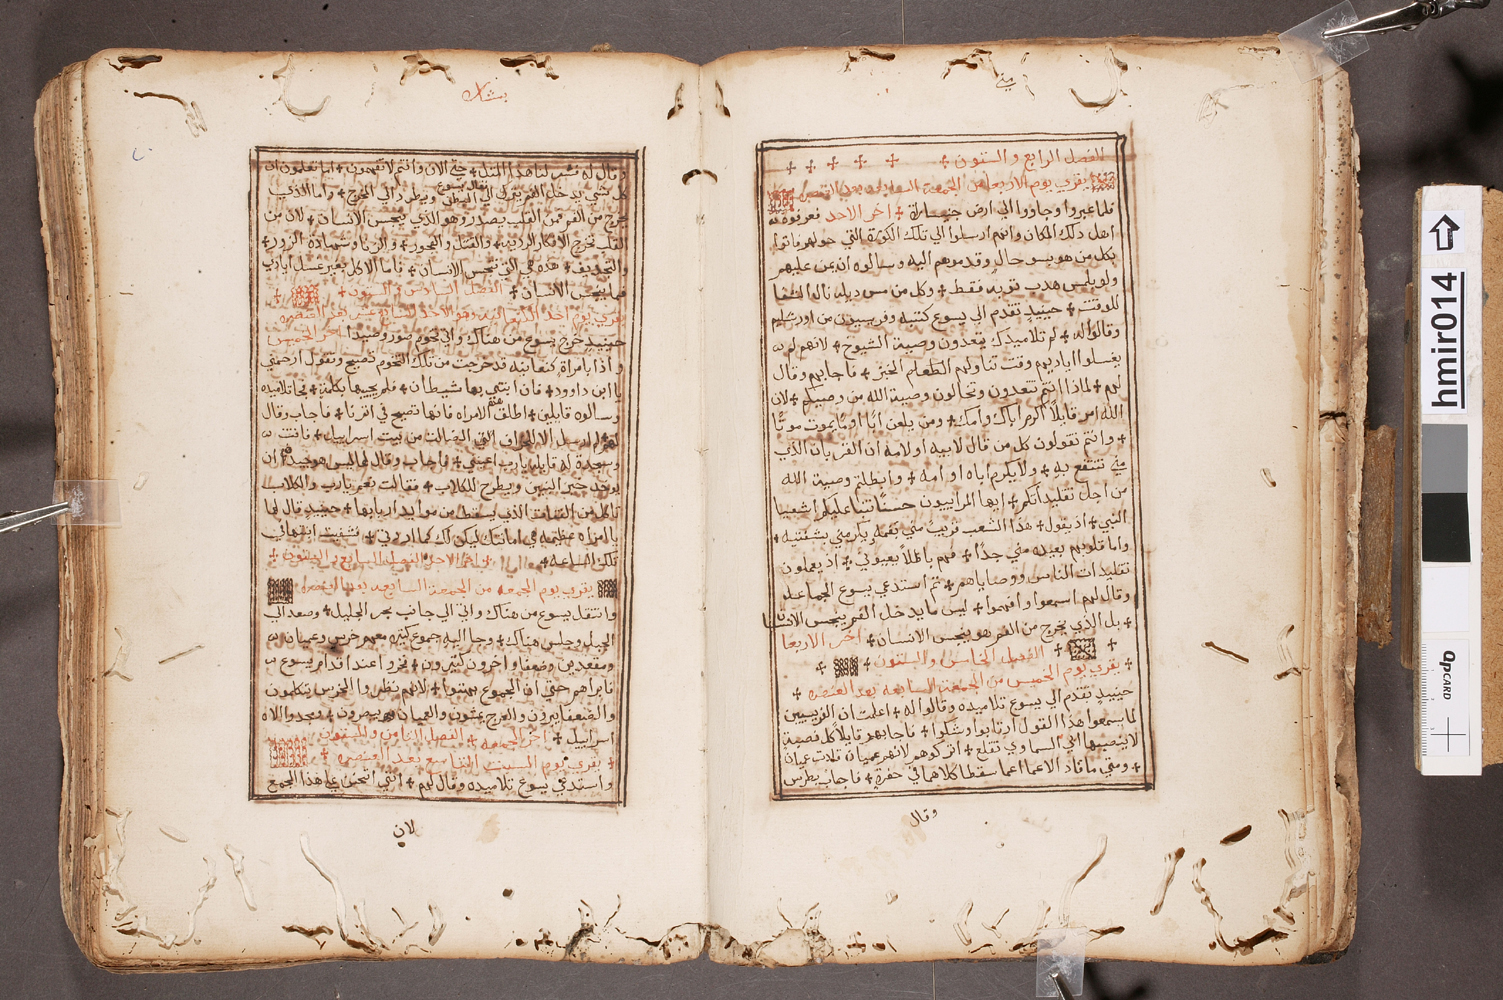 متي
الفصل الرابع والستون + + + + + +
يقري يوم الاربعا من الجمعة السابعة بعد العنصره
فلما عبروا وجاوزا الي ارض جنيسارة + اخر الاحد فعرفوه
اهل ذلك المكان وانهم ارسلوا الي تلك الكورة التي حولهم فاتوا
بكل من هو بسو حال وقدموهم اليه وسالوه ان يمن عليهم
ولو بلمس هدب ثوبه فقط + وكل من مس ذيله نال الشفا
للوقت + حينيد تقدم الي يسوع كتبه وفريسيون من اورشليم
وقالوا له + لم تلاميدك يتعدون وصية الشيوخ + لانهم لم
يغسلوا اياديهم وقت تناولهم الطعام الخبز + فاجابهم وقال
لهم + لماذا انتم تتعدون وتخالفون وصية الله من وصيتكم + لان
الله امر قايلاً اكرم اباك وامك + ومن يلعن ابًا او امًا يموت موتًا
+ وانتم تقولون كل من قال لابيه او لامه ان القربان الذي
مني تنتفع به + ولا يكرم اباه او امه + وابطلتم وصية الله
من اجل تقليداتكم + ايها المراييون حسنًا تنبا عليكم اشعيا
النبي + اذ يقول + هذا الشعب قريبٌ مني بفمه ويكرمني بشفتيه +
واما قلوبهم بعيده مني جدًا + فهم باطلاً يعبدوني + اذ يعلمون
تقليدات الناس ووصاياهم + ثم استدعي يسوع الجماعه
وقال لهم اسمعوا وافهموا + ليس ما يدخل الفم ينجس الانسان
+ بل الذي يخرج من الفم هو ينجس الانسان + اخر الاربعا
+ + الفصل الخامس والستون + +
+ يقري يوم الخميس من الجمعة السابعه بعد العنصره +
حينيدٍ تقدم الي يسوع تلاميده وقالوا له + اعلمت ان الفريسيين
لما سمعوا هذا القول ارتابوا وشكوا + فاجابهم قايلاً كل نصبة
لا ينصبها ابي السماوي تقلع + اتركوهم لانهم عميان قادت عميان
+ ومتي ما قاد الاعما اعما سقطا كلاهما في حفرة + فاجاب بطرس
وقال
بشاره
وقال له فسر لنا هذا المثل + حتي الان وانتم لا تفهمون + اما تعلمون ان
كل شي يدخل الفم ينزل الي البطن ويطرد الي المخرج + واما الذي
فقال يسوع
يخرج من الفم فمن القلب يصدر وهو الذي ينجس الانسان + لان من
القلب تخرج الافكار الرديه + والقتل والفجور + والزنا وشهادة الزور +
والتجديف + هذه هي التي تنجس الانسان + فاما الاكل بغير غسل ايادي
فما ينجس الانسان + الفصل السادس والستون +
حينيدٍ خرج يسوع من هناك واتي تخوم صور وصيدا اخر الخميس
واذا بامراة كنعانيه قد خرجت من تلك التخوم تصيح وتقول ارحمني
يا ابن داوود + فان ابنتي بها شيطان + فلم يجيبها بكلمة + فجا تلاميده
وسالوه قايلين + اطلق الامراه فانها تصيح في اثرنا + فاجاب وقال
لهم لم ارسل الا الي الخراف التي الضالت من بيت اسراييل + فاتت
وسجدة له قايله يارب اعيني + فاجاب وقال لها ليس هو جيد ان
يوخد خبز البنين ويطرح للكلاب + فقالت نعم يارب والكلاب
تاكل من الفتات الذي يسقط من موايد اربابها + حينيد قال لها
يا امراه عظيمه هي امانتك ليكن لك كما اردتي + فشفيت ابنتها في
تلك الساعه + اخر الاحد الفصل السابع والستون +
يقري يوم الجمعه من الجمعة السابعه بعد العنصره
وانتقل يسوع من هناك واتي الي جانب بحر الجليل + وصعد الي
الجبل وجلس هناك + وجا اليه جموع كثيره معهم خرس وعميان
ومقعدين وضعفا واخرون كثيرون + فخروا عند اقدام يسوع
فابراهم حتي ان الجموع بهتوا + لانهم نظروا الخرس يتكلمون
والضعفا يبرون والعرج يمشون والعميان يبصرون + ومجدوا اله
اسراييل + اخر الجمعه + الفصل الثامن والستون
+ يقري يوم السبت التاسع بعد العنصره +
واستدعي يسوع تلاميده وقال لهم + انني اتحنن علي هذا الجمع
لان
hmir014
QPCARD